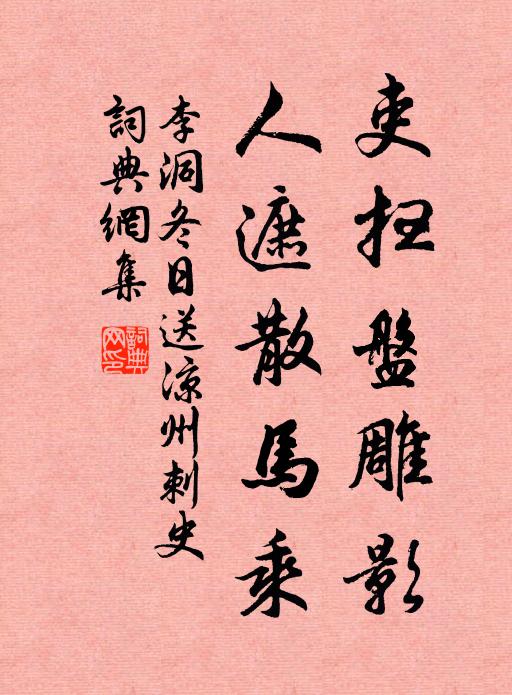 吏扫盤雕影
人遮散馬乘
李洞冬日送涼州刺史
詞典網集
詞典網印